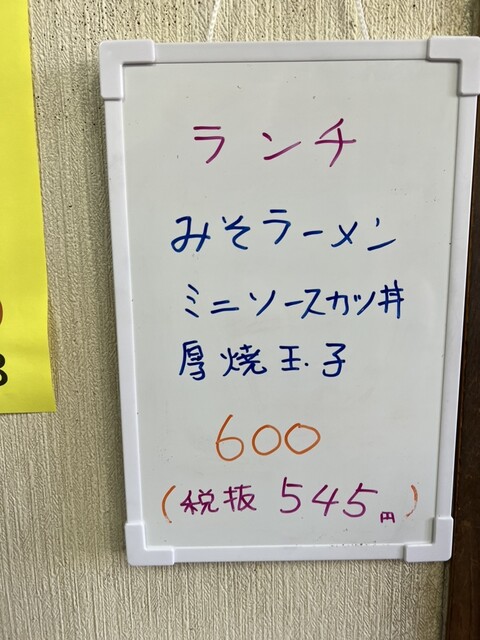 ランチ
みそラーメン
ミニソースカツ丼
厚焼玉子
600
(税抜 545円)